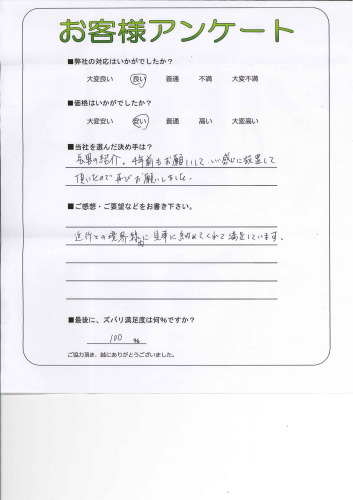 お客様アンケート
■弊社の対応はいかがでしたか？
大変良い 良い 普通 不満 大変不満
■価格はいかがでしたか？
大変安い 安い 普通 高い 大変高い
■当社を選んだ決め手は？
長男の紹介。 前もお願いして いい感じに して
頂いたので再びお願いしました。
■ご感想・ご要望などをお書き下さい。
との境界線 に見事に納めてくれて満足しています。
■最後に、ズバリ満足度は何％ですか？
100 %
ご協力頂き、誠にありがとうございました。